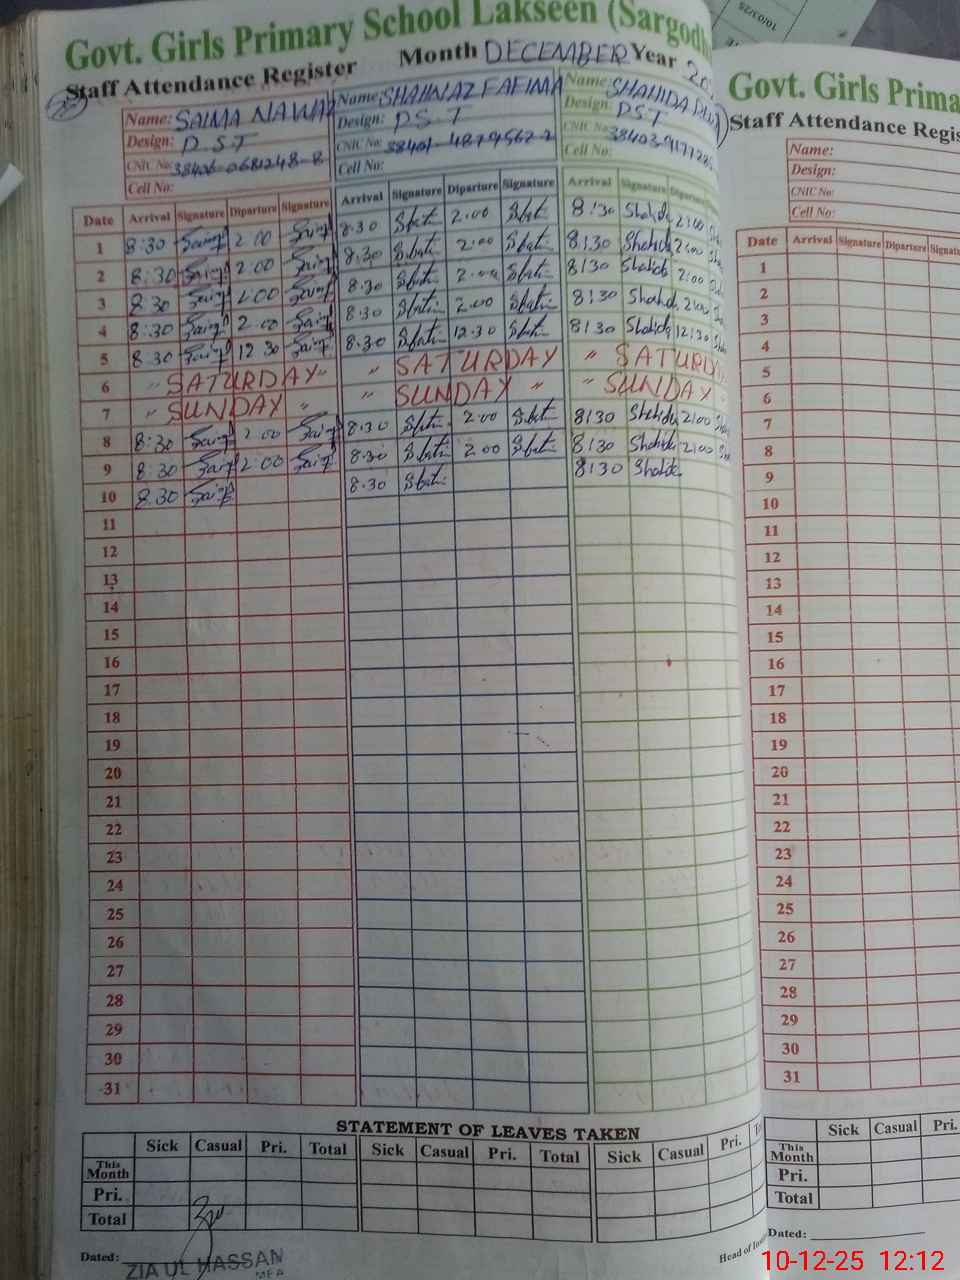 10/03/25
Govt. Girls Primary School Lakseen (Sargodh
Staff Attendance Register Month DECEMBER Year 20
Name: SAIMA NAWAZ Name: SHAHNAZ FATIMA Name: SHAHIDA
Design: P.S.T Design: P.S.T Design: PST
CNIC No: CNIC No: CNIC No:
Cell No: Cell No: Cell No:
Date Arrival Signature Diparture Signature Arrival Signature Diparture Signature Arrival Signature Diparture
1 8:30 2:00 8:30 2:00 8:30 Shahida 2:00
2 8:30 2:00 8:30 2:00 8:30 Shahida 2:00
3 8:30 2:00 8:30 2:00 8:30 Shahida 2:00
4 8:30 2:00 8:30 2:00 8:30 Shahida 2:00
5 8:30 12:30 8:30 12:30 8:30 Shahida 12:30
6 " SATURDAY " " SATURDAY " SATURDAY
7 " SUNDAY " " SUNDAY " " SUNDAY "
8 8:30 2:00 8:30 2:00 8:30 Shahida 2:00
9 8:30 2:00 8:30 2:00 8:30 Shahida 2:00
10 8:30 8:30 8:30 Shahida
11
12
13
14
15
16
17
18
19
20
21
22
23
24
25
26
27
28
29
30
31
STATEMENT OF LEAVES TAKEN
Sick Casual Pri. Total Sick Casual Pri. Total Sick Casual Pri.
This Month
Pri.
Total
Dated:
ZIA UL HASSAN
MEA
Head of
Govt. Girls Prima
Staff Attendance Regis
Name:
Design:
CNIC No:
Cell No:
Date Arrival Signature Diparture Signatu
1
2
3
4
5
6
7
8
9
10
11
12
13
14
15
16
17
18
19
20
21
22
23
24
25
26
27
28
29
30
31
Sick Casual Pri.
This Month
Pri.
Total
Dated:
10-12-25 12:12